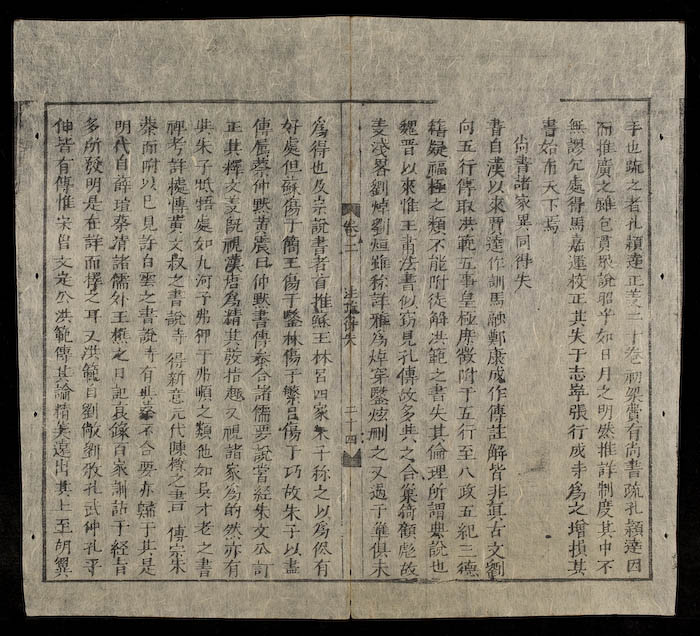 手也疏之者孔穎達正義二十卷初梁費有尚書疏孔穎達因
而推廣之雖包貫眾說昭乎如日月之明然推詳制度其中不
無謬冗處得馬嘉運校正其失于志寧張行成等為之增損其
書始布天下焉
尚書諸家異同得失
書自漢以來賈逵作訓馬融鄭康成作傳註解皆非真古文劉
向五行傳取洪範五事皇極庶徵附于五行至八政五紀三德
籍疑福極之類不能附徒解洪範之書失其倫理所謂異說也
魏晉以來惟王肅注書似竊見孔傳故多與之合巢猗顧彪故
姜淺畧劉焯劉炫雖稱詳雅為焯穿鑿炫刪之又過于華俱未
卷二
注疏得失
二十四
為得也及宋說書者首推蘇王林呂四家朱子稱之以為俱有
好處但蘇傷于簡王傷于鑿林傷于繁呂傷于巧故朱子以畫
傳屬蔡仲默黃震曰仲默書傳叅合諸儒要說嘗經朱文公訂
正其釋文義既視漢唐為精其發指趣又視諸家為的然亦有
與朱子牴牾處如九河子弗卿于弗頫之類他如吳才老之書
裨考詳據傳黃文叔之書說時得新意元代陳櫟之書傳宗朱
蔡而附以己見許白雲之書說時有與蔡不合要亦歸于其是
明代自薛瑄蔡清諸儒外王樵之日記袁錄百家訓詁于經旨
多所發明是在詳而擇之耳又洪範自劉敞劉敎孔武仲孔平
仲皆有傳惟宋呂文定公洪範傳其論精矣遠出其上至胡翼